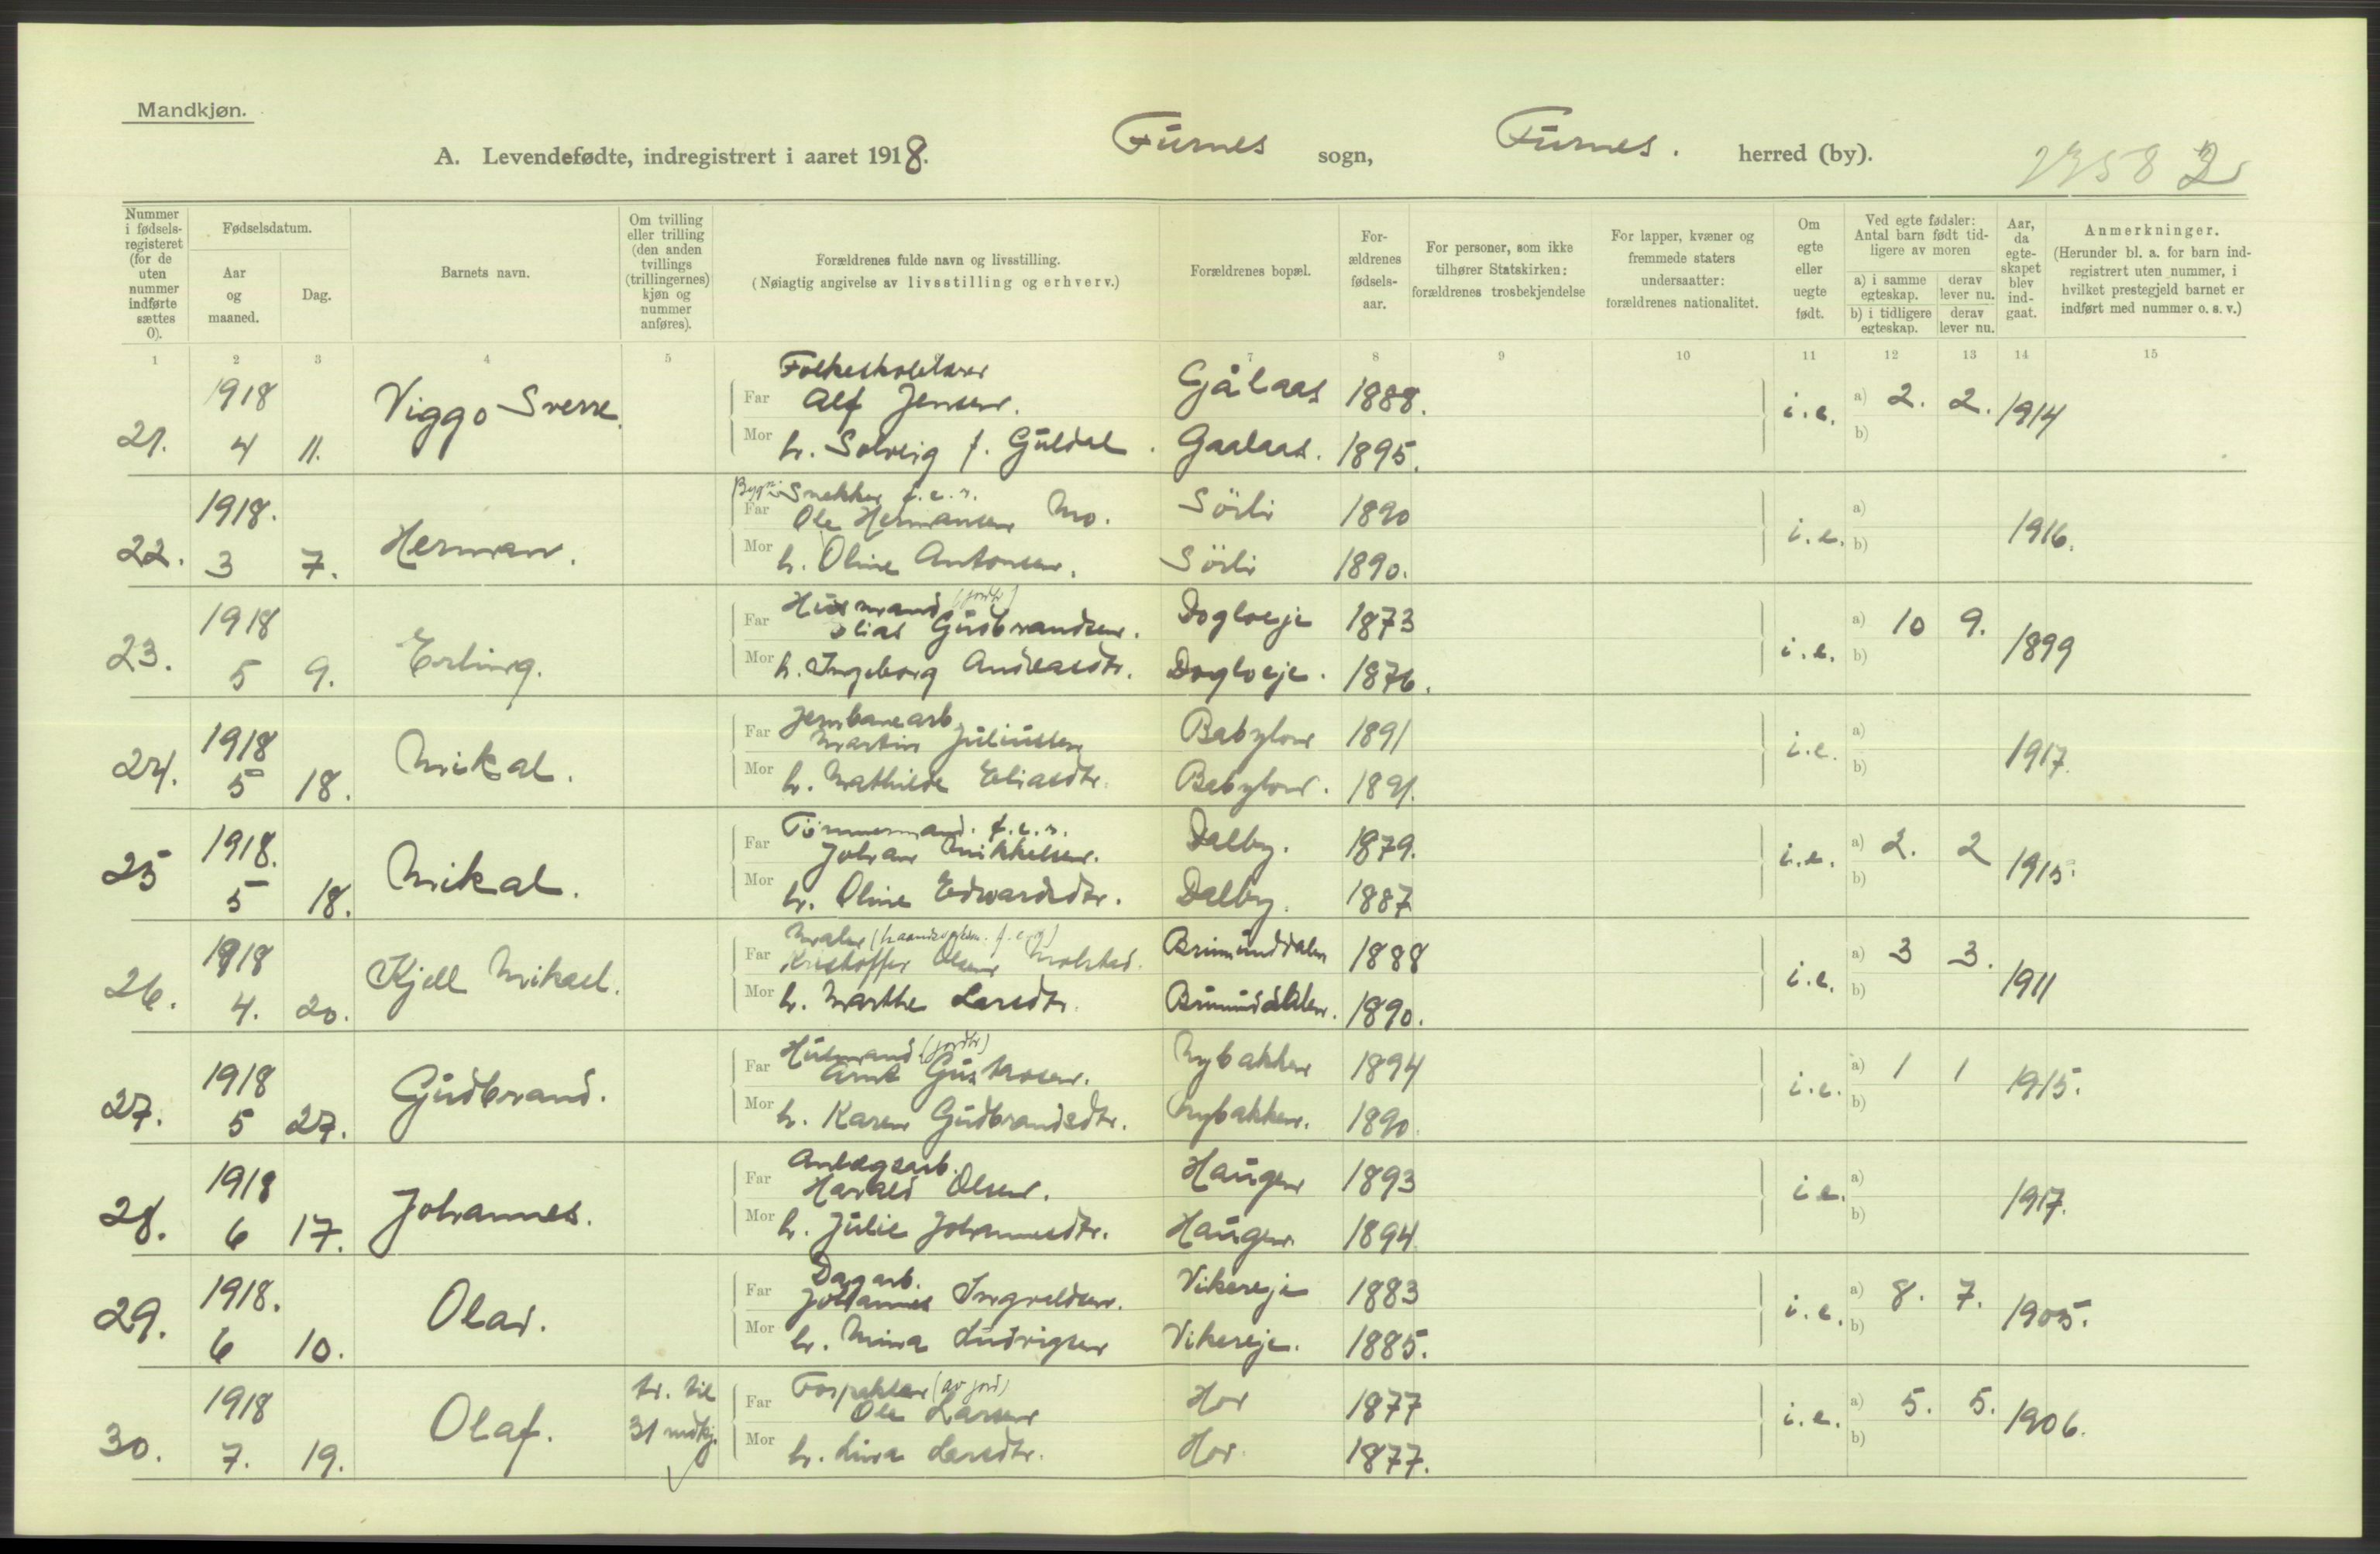 Mandkjøn.
A. Levendefødte, indregistrert i aaret 1918. Furnes sogn, Furnes. herred (by).
Nummer i fødsels-registeret (for de uten nummer indførte sættes 0).
Fødselsdatum.
Aar og maaned.
Dag.
Barnets navn.
Om tvilling eller trilling (den anden tvillings (trillingernes) kjøn og nummer anføres).
Forældrenes fulde navn og livsstilling.
(Nøiagtig angivelse av livsstilling og erhverv.)
Forældrenes bopæl.
For-ældrenes fødsels-aar.
For personer, som ikke tilhører Statskirken: forældrenes trosbekjendelse
For lapper, kvæner og fremmede staters undersaatter: forældrenes nationalitet.
Om egte eller uegte født.
Ved egte fødsler: Antal barn født tid-ligere av moren
a) i samme egteskap.
derav lever nu.
b) i tidligere egteskap.
derav lever nu.
Aar, da egte-skapet blev ind-gaat.
Anmerkninger.
(Herunder bl. a. for barn ind-registrert uten nummer, i hvilket prestegjeld barnet er indført med nummer o. s. v.)
1 2 3 4 5 7 8 9 10 11 12 13 14 15
Folkeskolelærer
1918 Viggo Sverre. Far Alf Jensen. Gjålaas 1888. i.e. a) 2. 2. 1914
21. 4 11. Mor h. Solveig f. Guldal. Gaalaas. 1895. b)
Bygn. Snekker f.e.r.
1918. Far Ole Hermansen Mo. Sörli 1890 i.e. a) 1916.
22. 3 7. Herman. Mor h. Oline Antonsen. Sörli 1890. b)
Husmand (jordbr)
1918 Far Elias Gudbrandsen. Dogloeje 1873 i.e. a) 10 9. 1899
23. 5 9. Erling. Mor h. Ingeborg Andreasdtr. Dogloeje. 1876. b)
Jernbanearb
1918 Far Martin Juliussen Babylon 1891 i.e. a) 1917.
24. 5 18. Mikal. Mor h. Mathilde Eliasdtr. Babylon. 1891. b)
Tömmermand. f.e.r.
1918. Far Johan Mikkelsen. Dalby. 1879. i.e. a) 2. 2 1915.
25 5 18. Mikal. Mor h. Oline Edvardsdtr. Dalby. 1887 b)
Maler (haandverksm. f.e.r)
1918 Kjell Mikael. Far Kristoffer Olsen Molstad. Brumunddalen 1888 i.e. a) 3 3. 1911
26. 4. 20. Mor h. Marthe Larsdtr. Brumunddalen. 1890. b)
Husmand (jordbr)
1918 Far Arnt Gustavsen. Nybakken 1894 i.e. a) 1 1 1915.
27. 5 27. Gudbrand. Mor h. Karen Gudbrandsdtr. Nybakken. 1890 b)
Anlægsarb.
1918 Far Harald Olsen. Haugen 1893 i.e. a) 1917.
28. 6 17. Johannes. Mor h. Julie Johannesdtr. Haugen 1894. b)
Dagarb.
1918. Far Johannes Ingvaldsen. Vikereje 1883 i.e. a) 8. 7. 1905.
29. 6 10. Olav. Mor h. Mina Ludvigsen Vikereje. 1885. b)
Forpakter (av jord)
1918 tv. til Far Ole Larsen Hor 1877 i.e. a) 5. 5. 1906.
30. 7. 19. Olaf. 31 mdkj. Mor h. Lina Larsdtr. Hor. 1877. b)